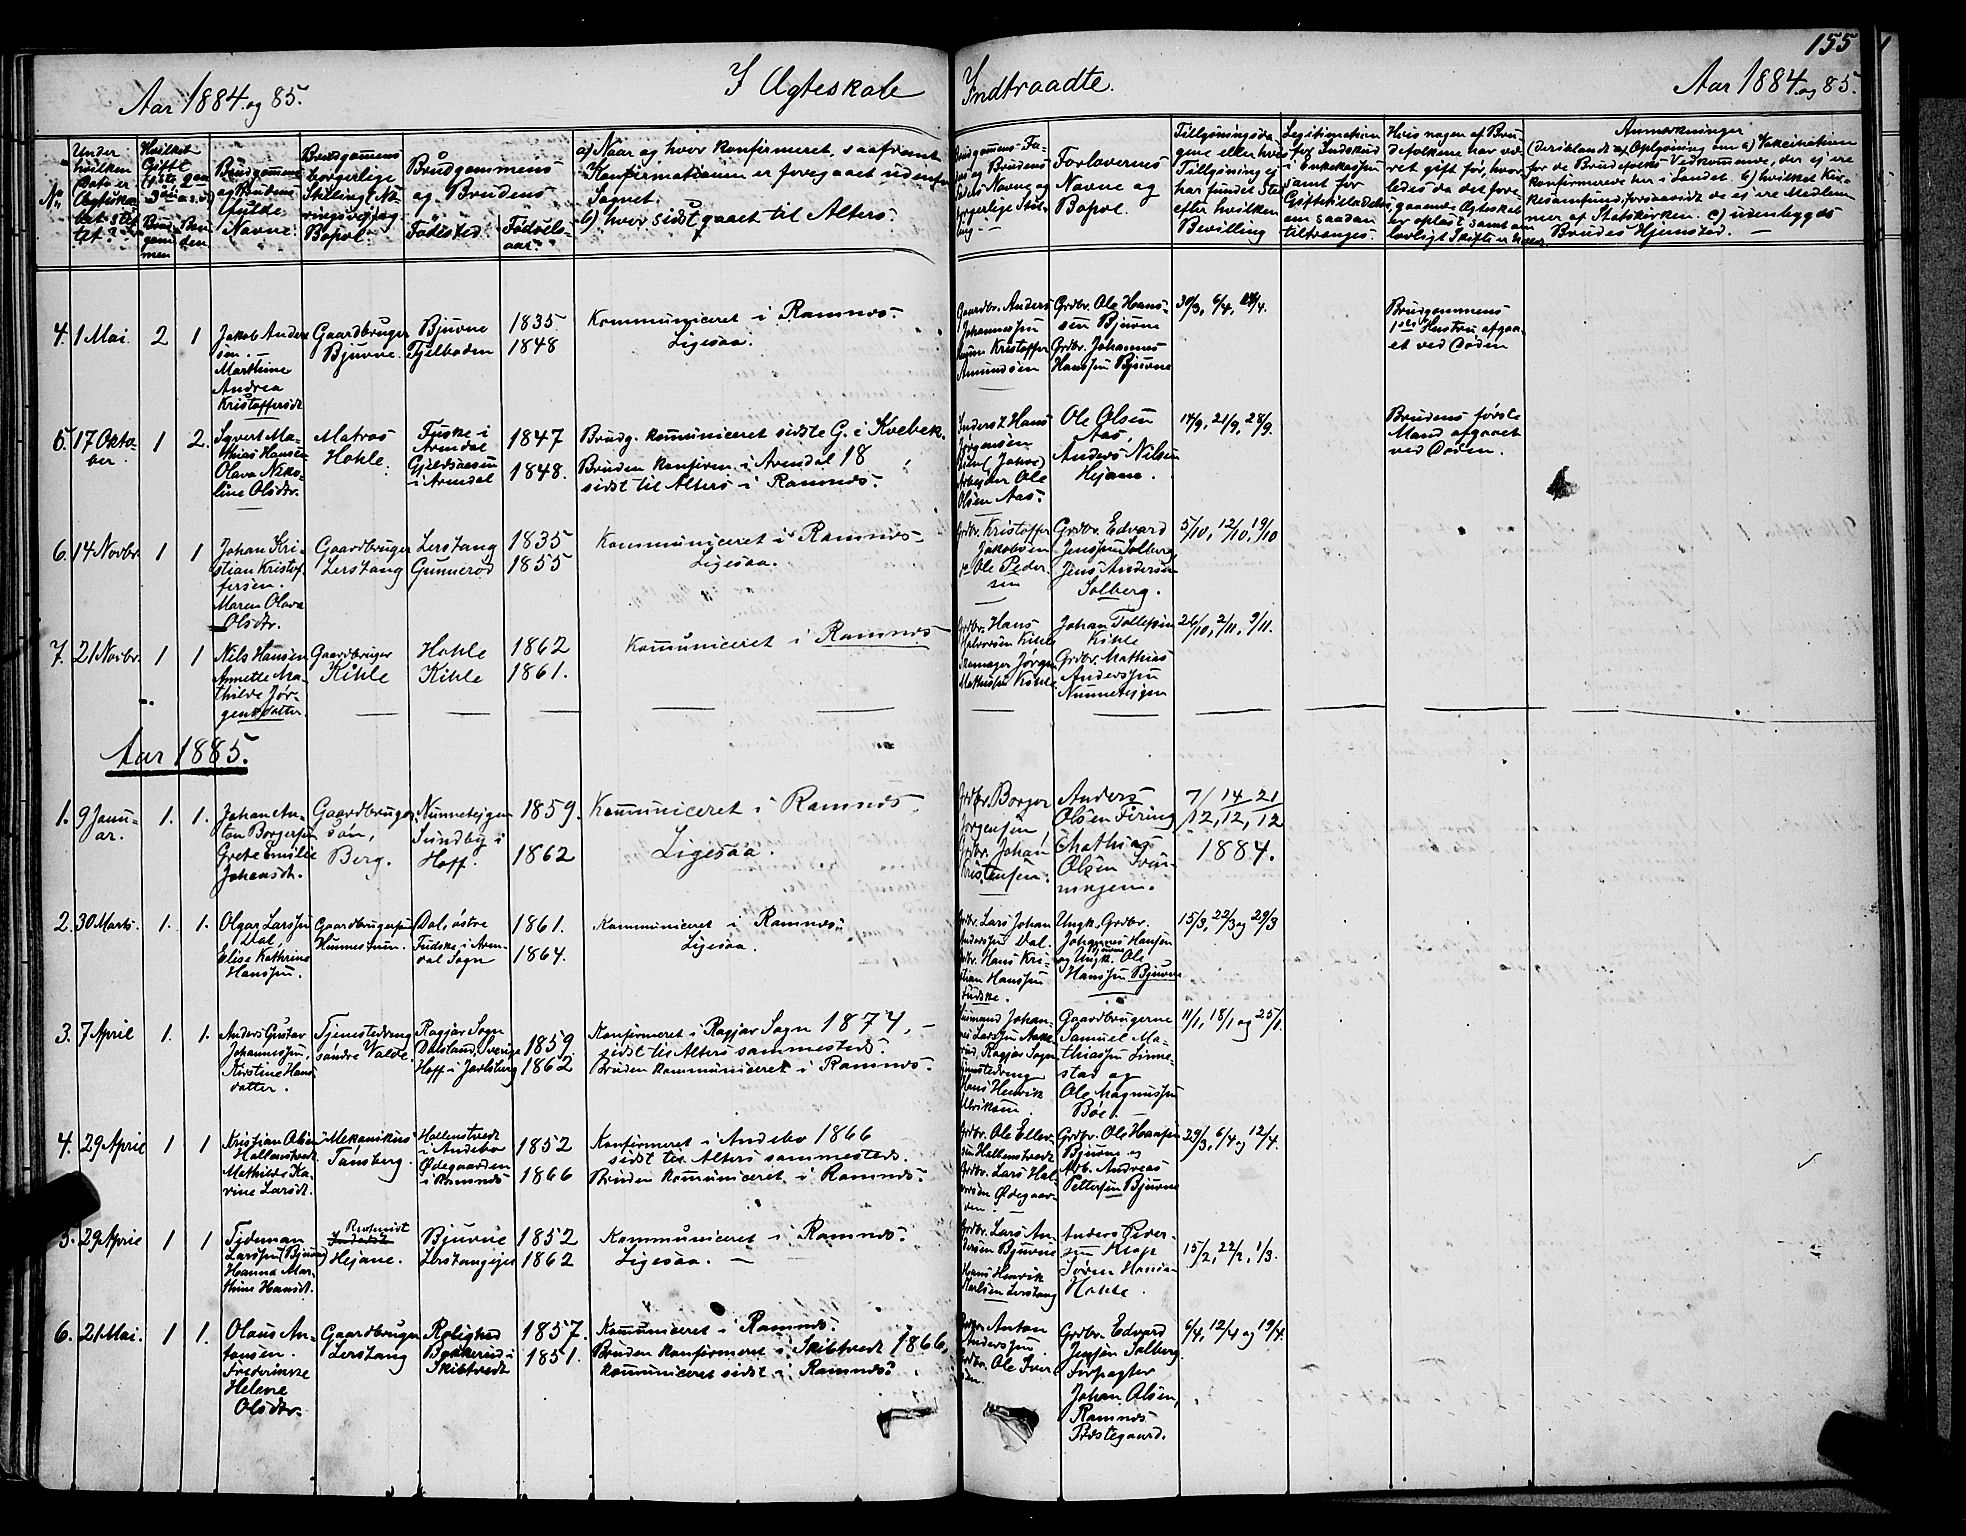 155
Aar 1884 og 85.
I Ægteskab
Indtraadte.
Aar 1884 og 85.
No
Under
hvilken
Dato er
Ægteska-
bet stif-
tet?
Hvilket
Gifte
Brud-
gom-
men
Bru-
den
Brudgommens
og Brudens
fulde
Navne.
Brudgommens
borgerlige
Stilling (Næ-
ringsvej) og
Bopæl.
Brudgommens
og Brudens
Fødested.
Fødsels-
aar.
a) Naar og hvor konfirmeret, saafremt
Konfirmationen er foregaaet udenfor
Sognet.
b) hvor sidst gaaet til Alters.
Brudgommens Fa-
ders og Brudens
Faders Navne og
borgerlige Stil-
ling.
Forlovernes
Navne og
Bopæl.
Tillysningsda-
gene eller hvis
Tillysning ej
har fundet Sted
efter hvilken
Bevilling
Legitimation
for Indskud
i Enkekassen
samt for
om saadan
tiltrænges.
Hvis nogen af Bru-
defolkene har væ-
ret gift før, hvor-
ledes da det fore-
gaaende Ægteskab
er opløst samt om
lovligt Skifte er
Anmærkninger
(Deriblandt ogs. Oplysning om a) Vakcination
for de Brudefolks Vedkommende, der ej ere
konfirmerede her i Landet. b) hvilket Kir-
kesamfund, forsaavidt de ej ere Medlem-
mer af Statskirken. c) udenbygds
Brudes Hjemsted.
4. 1 Mai. 2 1
Jakob Ander
sen.
Marthine
Andrea
Kristoffersdt
Gaardbruger
Bjuvne.
Bjuvne
Fjelboden
1835
1848
Kommuniceret i Ramnæs.
Ligesaa.
Gaardbr. Anders
Johannessen
Kristoffer
Amundsen
Grdbr. Ole Hans-
sen Bjuvne
Grdbr. Johannes
Hanssen Bjuvne
30/3, 6/4, 14/4.
Brudgommens
1ste Hustru afgaa-
et ved Døden
5. 17 Okto-
ber. 1 2.
Syvert Ma-
thias Hansen
Olava Niko-
line Olsdtr.
Matros
Hohle.
Fuske i
Arendal
i Arendal
1847
1848.
Brudg. kommuniceret sidste G. i Kvebek.
Bruden konfirm. i Arendal 18
sidst til Alters i Ramnæs.
Hans
Jørgensen
Arbejder Ole
Olsen Aas.
Ole Olsen
Aas,
Anders Nilsen
Hejane.
14/9, 21/9, 28/9.
Brudens første
Mand afgaaet
ved Døden.
6. 14 Novbr. 1 1
Johan Kri-
stian Kristof-
fersen.
Maren Olava
Olsdtr.
Gaardbruger
Lerstang
Lerstang
Gunnerød
1835
1855
Kommuniceret i Ramnæs.
Ligesaa.
Grdbr. Kristoffer
Jakobsen
Ole Peder-
sen
Grdbr. Edvard
Jenssen Solberg
Jens Andersen
Solberg.
5/10, 12/10, 19/10
7. 21 Novbr. 1 1
Nils Hansen
Annette Ma-
thilde Jør-
gensdatter.
Gaardbruger
Kihle
Hohle
Kihle
1862
1861.
Kommuniceret i Ramnæs
Grdbr. Hans
Halvorsen Kihle
Skomager Jørgen
Mathissen Kihle
Johan Tollefsen
Kihle
Grdbr. Mathias
Anderssen
Nunnetejgen
26/10, 2/11, 9/11.
Aar 1885.
1. 9 Janu-
ar. 1. 1.
Johan An-
ton Borgersen
Grete Emilie
Johansdt.
Gaardbruger-
søn,
Berg.
Nunnetejgen
Sundby i
Hoff.
1859.
1862
Kommuniceret i Ramnæs.
Ligesaa.
Grdbr. Borger
Jørgensen,
Grdbr. Johan
Kristensen.
Anders
Olsen Firing
Mathias
Olsen Svin-
ningen.
7/12, 14/12, 21/12
1884.
2. 30 Marts. 1. 1.
Olgar Larssen
Dal
Elise Kathrine
Hanssen.
Gaardbrugersøn
Himmestuen.
Dal, østre
Fudske i Aren-
dal Sogn
1861.
1864.
Kommuniceret i Ramnæs.
Ligesaa.
Grdbr. Lars Johan
Anderssen Dal.
Grdbr. Hans Kri-
stian Hanssen
Fudske.
Ungk. Grdbr.
Johannes Hansen
Bjuvne
og Ungk. Ole
Hanssen Bjuvne
15/3, 22/3 og 29/3
3. 7 April 1. 1.
Anders Gustav
Johannessen.
Kirstine Hans
datter.
Tjenestedreng
søndre Valde.
Ragjær Sogn
Dalsland, Sverige
Hoff i Jarlsberg
1859.
1862
Konfirmeret i Ragjær Sogn 1874,
sidst til Alters sammesteds.
Bruden kommuniceret i Ramnæs.
Husmand Johan-
nes Larssen
Ragjær Sogn
Tjenestedreng
Hans Henrik
Ulriksen
Gaardbrugerne
Samuel Ma-
thiassen Linne-
stad og
Ole Magnussen
Bøe.
11/1, 18/1 og 25/1.
4. 29 April 1 1
Kristian Olsen
Hallenstvedt.
Mathilde Ka-
rine Larsdt.
Mekanikus
Tønsberg.
Hallenstvedt
i Andebo
Ødegaarden
i Ramnæs
1852
1866
Konfirmeret i Andebo 1866
sidst til Alters sammesteds.
Bruden kommuniceret i Ramnæs.
Grdbr. Ole Eller-
sen Hallenstvedt
Grdbr. Lars Hal-
vorsen Ødegaar-
den
Grdbr. Ole Hansen
Bjuvne og
Arb. Andreas
Pettersen Bjuvne
29/3, 6/4 og 12/4.
5. 29 April 1 1
Tideman
Larssen (Bjuvne)
Hanna Mar-
thine Hansdt.
Hejane.
Bjuvne
Lerstangejet
1852
1862
Kommuniceret i Ramnæs.
Ligesaa.
Grdbr. Lars An-
dersen Bjuvne
Hans Henrik
Karlsen Lerstang
Anders Peder-
sen Klop
Søren Hansen
Hohle.
15/2, 22/2, 1/3.
6. 21 Mai. 1 1.
Olaus An-
tonsen.
Frederikke
Helene
Olsdtr.
Gaardbruger
Lerstang
Rolighed
Bakkerud i
Skibtvedt
1857.
1851.
Kommuniceret i Ramnæs.
Bruden konfirmeret i Skibtvedt 1866,
kommuniceret sidst i Ramnæs.
Anton
Anderssen.
Grdbr. Ole Iver-
sen
Grdbr. Edvard
Jenssen Solberg.
Forpagter
Johan Olsen,
Ramnæs
Præstegaard.
6/4, 12/4 og 19/4.